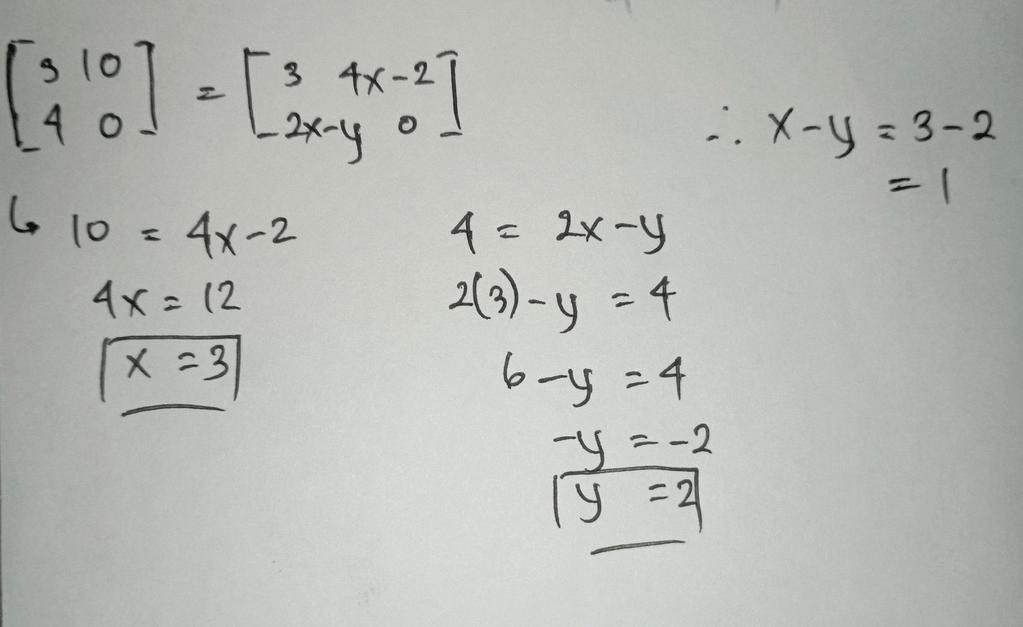 [3 10] = [3 4x-2]
[4 0] [2x-y 0]
∴ x-y = 3-2
= 1
↳ 10 = 4x-2
4x = 12
x = 3
4 = 2x-y
2(3)-y = 4
6-y = 4
-y = -2
y = 2